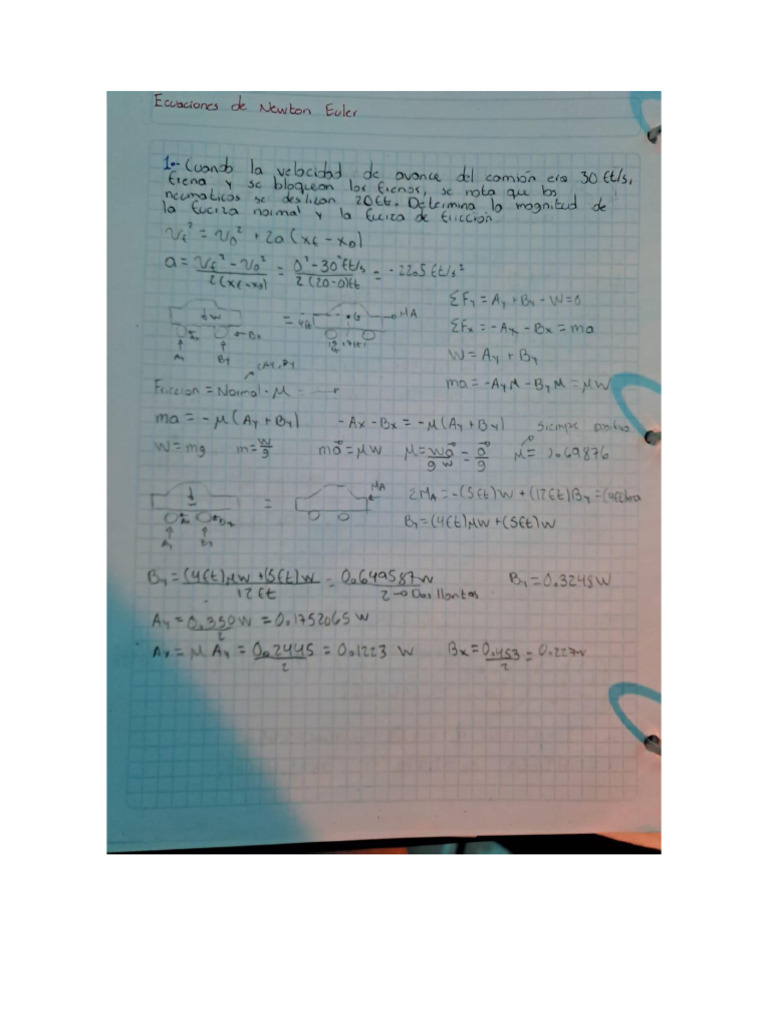 Ecuaciones de Newton Euler
1.- Cuando la velocidad de avance del camión era 30 ft/s,
frena y se bloquean los frenos, se nota que los
neumaticos se deslizan 20ft. Determina la magnitud de
la fuerza normal y la fuerza de friccion
Vf² = V0² + 2a (xf - x0)
a = Vf² - V0² / 2(xf - x0) = 0² - 30² ft/s / 2(20-0)ft = -22.5 ft/s²
ΣFy = Ay + By - W = 0
W Bx Ay By = G MA
ΣFx = -Ax - Bx = ma
W = Ay + By
(Ay, By)
ma = -Ayμ - Byμ = μW
Friccion = Normal · μ
ma = -μ(Ay + By) -Ax - Bx = -μ(Ay + By) Siempre positivo
W = mg m = W/g ma = μW μ = Wa/gW = a/g μ = 0.69876
MA
ΣMA = -(5ft)W + (12ft)By = (4ft)ma
By = (4ft)μW + (5ft)W
Ay By
By = (4ft)μW + (5ft)W / 12ft = 0.649587W / 2 → Dos llantas By = 0.3248W
Ay = 0.350W / 2 = 0.1752065 W
Ax = μ Ay = 0.2445 / 2 = 0.1223 W Bx = 0.453 / 2 = 0.227W